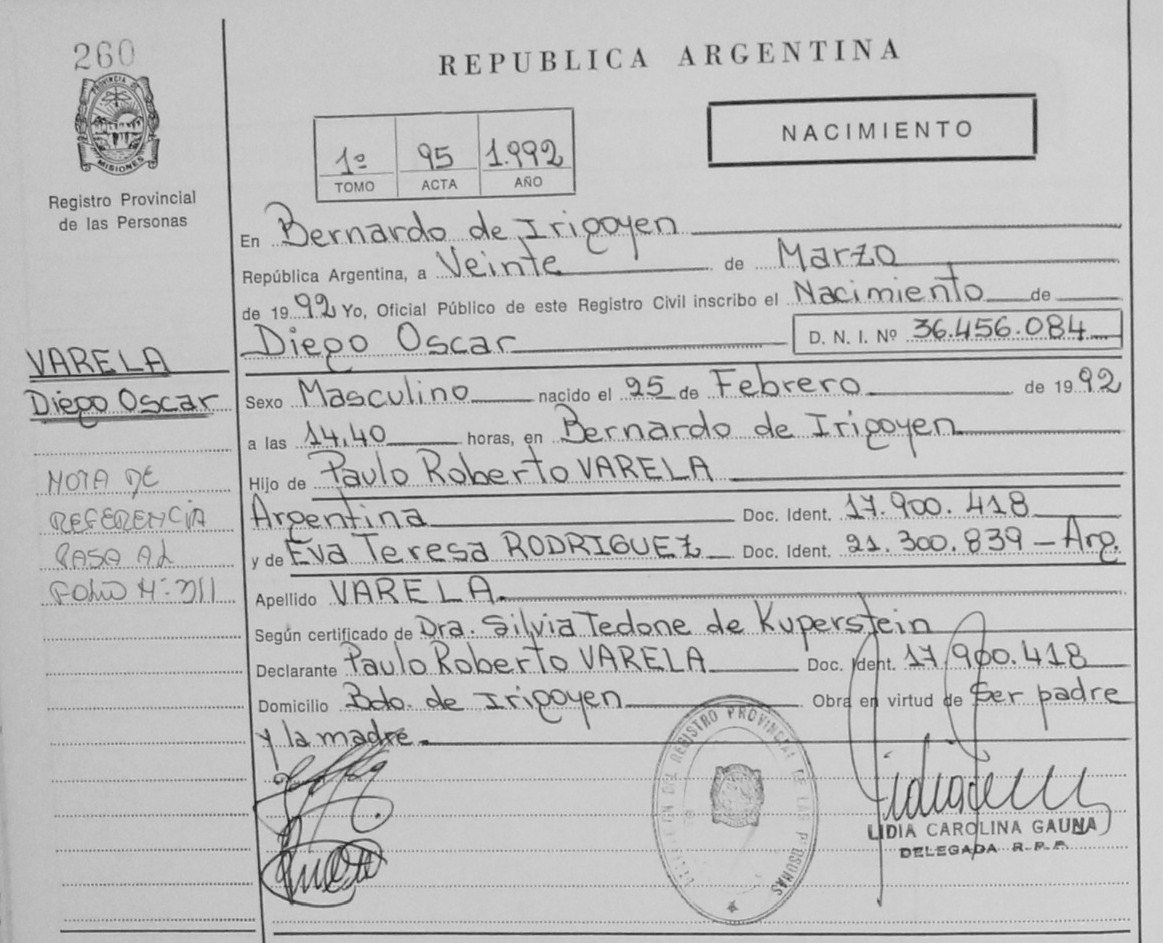 260
PROVINCIA DE
MISIONES
Registro Provincial
de las Personas
REPUBLICA ARGENTINA
1º 95 1.992
TOMO ACTA AÑO
NACIMIENTO
En Bernardo de Irigoyen
República Argentina, a Veinte de Marzo
de 1992 Yo, Oficial Público de este Registro Civil inscribo el Nacimiento de
Diego Oscar D. N. I. Nº 36.456.084
VARELA
Diego Oscar
Sexo Masculino nacido el 25 de Febrero de 1992
a las 14,40 horas, en Bernardo de Irigoyen
Hijo de Paulo Roberto VARELA
Argentina Doc. Ident. 17.900.418
y de Eva Teresa RODRIGUEZ Doc. Ident. 21.300.839 - Arg.
Apellido VARELA.
Según certificado de Dra. Silvia Tedone de Kuperstein
Declarante Paulo Roberto VARELA Doc. Ident. 17.900.418
Domicilio Bdo. de Irigoyen Obra en virtud de Ser padre
y la madre.
NOTA DE
REFERENCIA
PASA AL
FOLIO Nº 311
DEL REGISTRO PROVINCIAL DE LAS PERSONAS
LIDIA CAROLINA GAUNA
DELEGADA R.P.P.